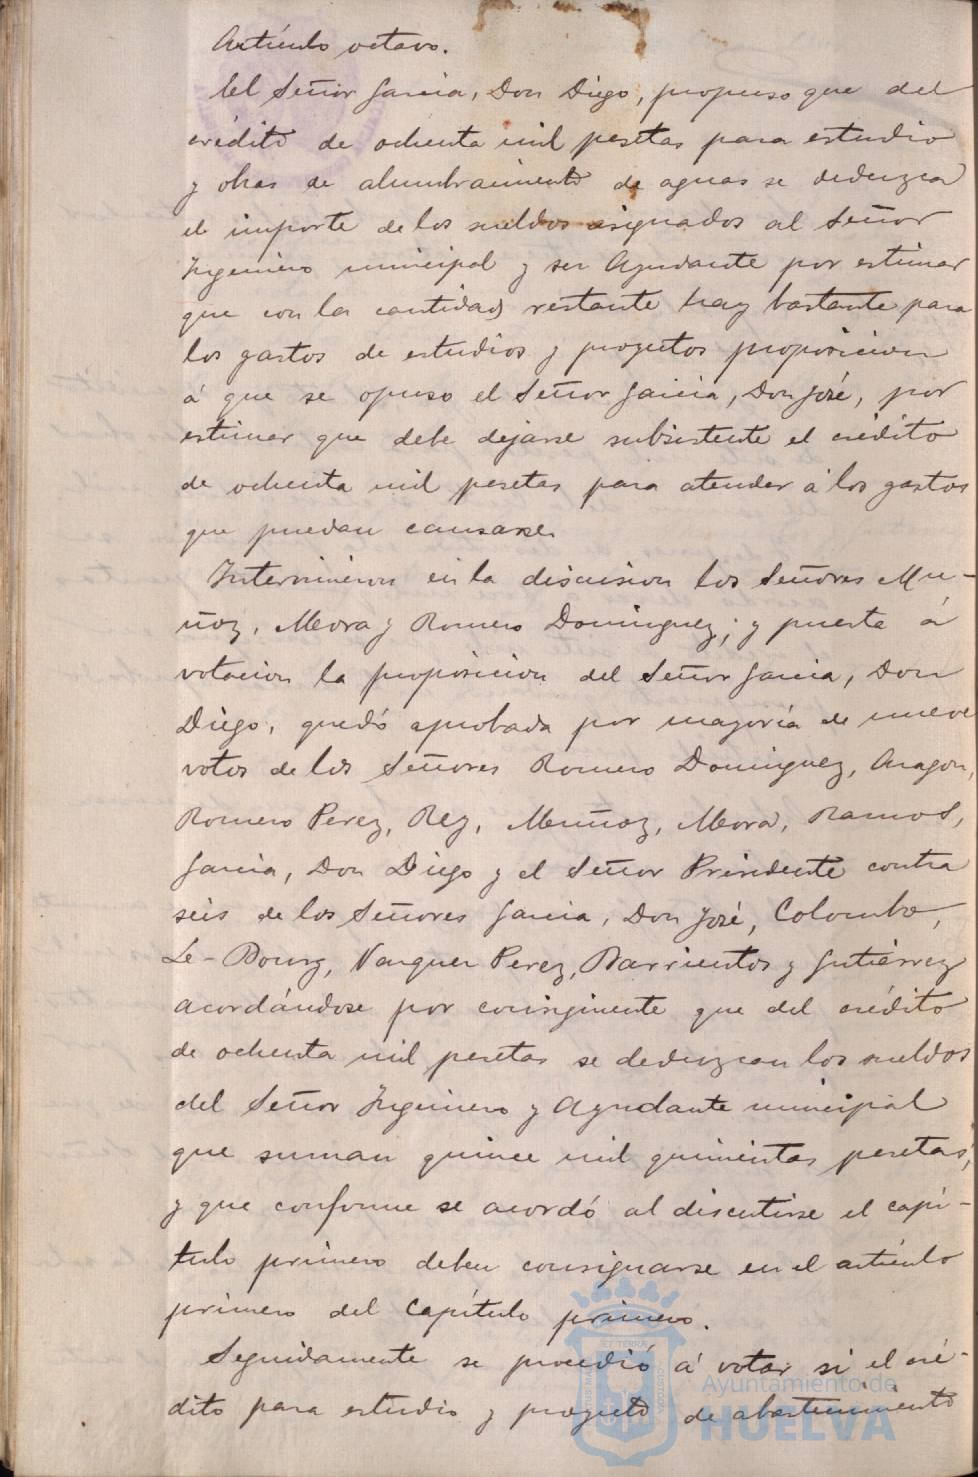 Artículo octavo.
El Señor Garcia, Don Diego, propuso que del
crédito de ochenta mil pesetas para estudio
y obras de alumbramiento de aguas se deduzca
el importe de los sueldos asignados al Señor
Ingeniero municipal y ser Ayudante por estimar
que con la cantidad restante hay bastante para
los gastos de estudios y proyectos proposicion
á que se opuso el Señor Garcia, Don José, por
estimar que debe dejarse subsistente el crédito
de ochenta mil pesetas para atender á los gastos
que puedan causarse.
Intervinieron en la discusion los Señores Mu-
ñoz, Mora y Romero Dominguez; y puesta á
votacion la proposicion del Señor Garcia, Don
Diego, quedó aprobada por mayoría de nueve
votos de los Señores Romero Dominguez, Aragon,
Romero Perez, Rey, Muñoz, Mora, Ramos,
Garcia, Don Diego y el Señor Presidente contra
seis de los Señores Garcia, Don José, Colombo,
Le-Bourg, Vazquez Perez, Barrientos y Gutiérrez
acordándose por consiguiente que del crédito
de ochenta mil pesetas se deduzcan los sueldos
del Señor Ingeniero y Ayudante municipal
que suman quince mil quinientas pesetas,
y que conforme se acordó al discutirse el capí-
tulo primero deben consignarse en el artículo
primero del Capítulo primero.
Seguidamente se procedió á votar si el cré-
dito para estudio y proyecto de abastecimiento
Ayuntamiento de
HUELVA